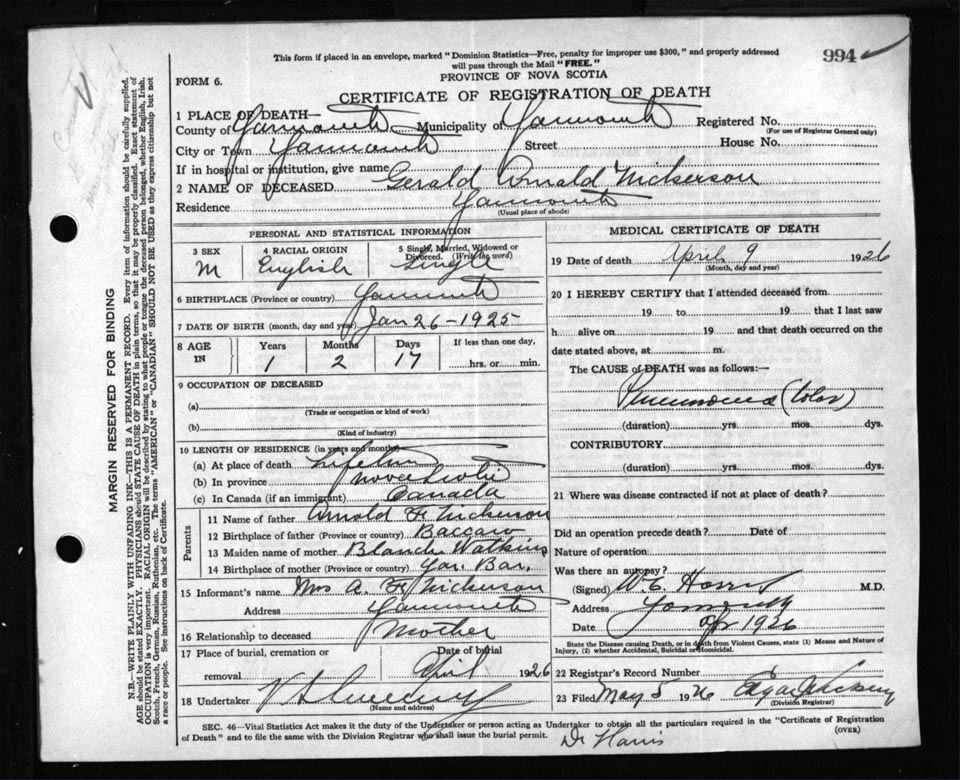 This form if placed in an envelope, marked "Dominion Statistics—Free, penalty for improper use $300," and properly addressed
will pass through the Mail "FREE."
994
FORM 6.
PROVINCE OF NOVA SCOTIA
CERTIFICATE OF REGISTRATION OF DEATH
1 PLACE OF DEATH—
County of Yarmouth Municipality of Yarmouth Registered No.
(For use of Registrar General only)
City or Town Yarmouth Street House No.
If in hospital or institution, give name
2 NAME OF DECEASED Gerald Arnald Nickerson
Residence Yarmouth
(Usual place of abode)
PERSONAL AND STATISTICAL INFORMATION
3 SEX 4 RACIAL ORIGIN 5 Single, Married, Widowed or Divorced. (Write the word)
M English Single
6 BIRTHPLACE (Province or country) Yarmouth
7 DATE OF BIRTH (month, day and year) Jan 26 - 1925
8 AGE IN Years Months Days If less than one day,
1 2 17 hrs. or min.
9 OCCUPATION OF DECEASED
(a)
(Trade or occupation or kind of work)
(b)
(Kind of industry)
10 LENGTH OF RESIDENCE (in years and months)
(a) At place of death Lifetime
(b) In province Nova Scotia
(c) In Canada (if an immigrant) Canada
Parents
11 Name of father Arnald F Nickerson
12 Birthplace of father (Province or country) Baccaro
13 Maiden name of mother Blanch Watkins
14 Birthplace of mother (Province or country) Yar. Bar.
15 Informant's name Mrs A. F. Nickerson
Address Yarmouth
16 Relationship to deceased Mother
17 Place of burial, cremation or removal Date of burial
April 1926
18 Undertaker
(Name and address)
MEDICAL CERTIFICATE OF DEATH
19 Date of death April 9 1926
(Month, day and year)
20 I HEREBY CERTIFY that I attended deceased from
19 to 19 that I last saw
h alive on 19 and that death occurred on the
date stated above, at m.
The CAUSE of DEATH was as follows:—
Pneumonia (Lobar)
(duration) yrs. mos. dys.
CONTRIBUTORY
(duration) yrs. mos. dys.
21 Where was disease contracted if not at place of death?
Did an operation precede death? Date of
Nature of operation
Was there an autopsy?
(Signed) W. C. Harris M.D.
Address Yarmouth
Date Apr 1926
State the Disease causing Death, or in death from Violent Causes, state (1) Means and Nature of
Injury, (2) whether Accidental, Suicidal or Homicidal.
22 Registrar's Record Number
23 Filed May 5 1926 Edgar
(Division Registrar)
SEC. 46—Vital Statistics Act makes it the duty of the Undertaker or person acting as Undertaker to obtain all the particulars required in the "Certificate of Registration
of Death" and to file the same with the Division Registrar who shall issue the burial permit.
(OVER)
Dr Harris
MARGIN RESERVED FOR BINDING
N.B.—WRITE PLAINLY WITH UNFADING INK—THIS IS A PERMANENT RECORD. Every item of information should be carefully supplied.
AGE should be stated EXACTLY. PHYSICIANS should STATE CAUSE OF DEATH in plain terms, so that it may be properly classified. Exact statement of
OCCUPATION is very important. RACIAL ORIGIN will be described by stating to what people or tongue the deceased person belonged, whether English, Irish,
Scotch, French, German, Russian, Ruthenian, etc. The terms "AMERICAN" or "CANADIAN" SHOULD NOT BE USED as they express citizenship but not
a race or people. See instructions on back of Certificate.